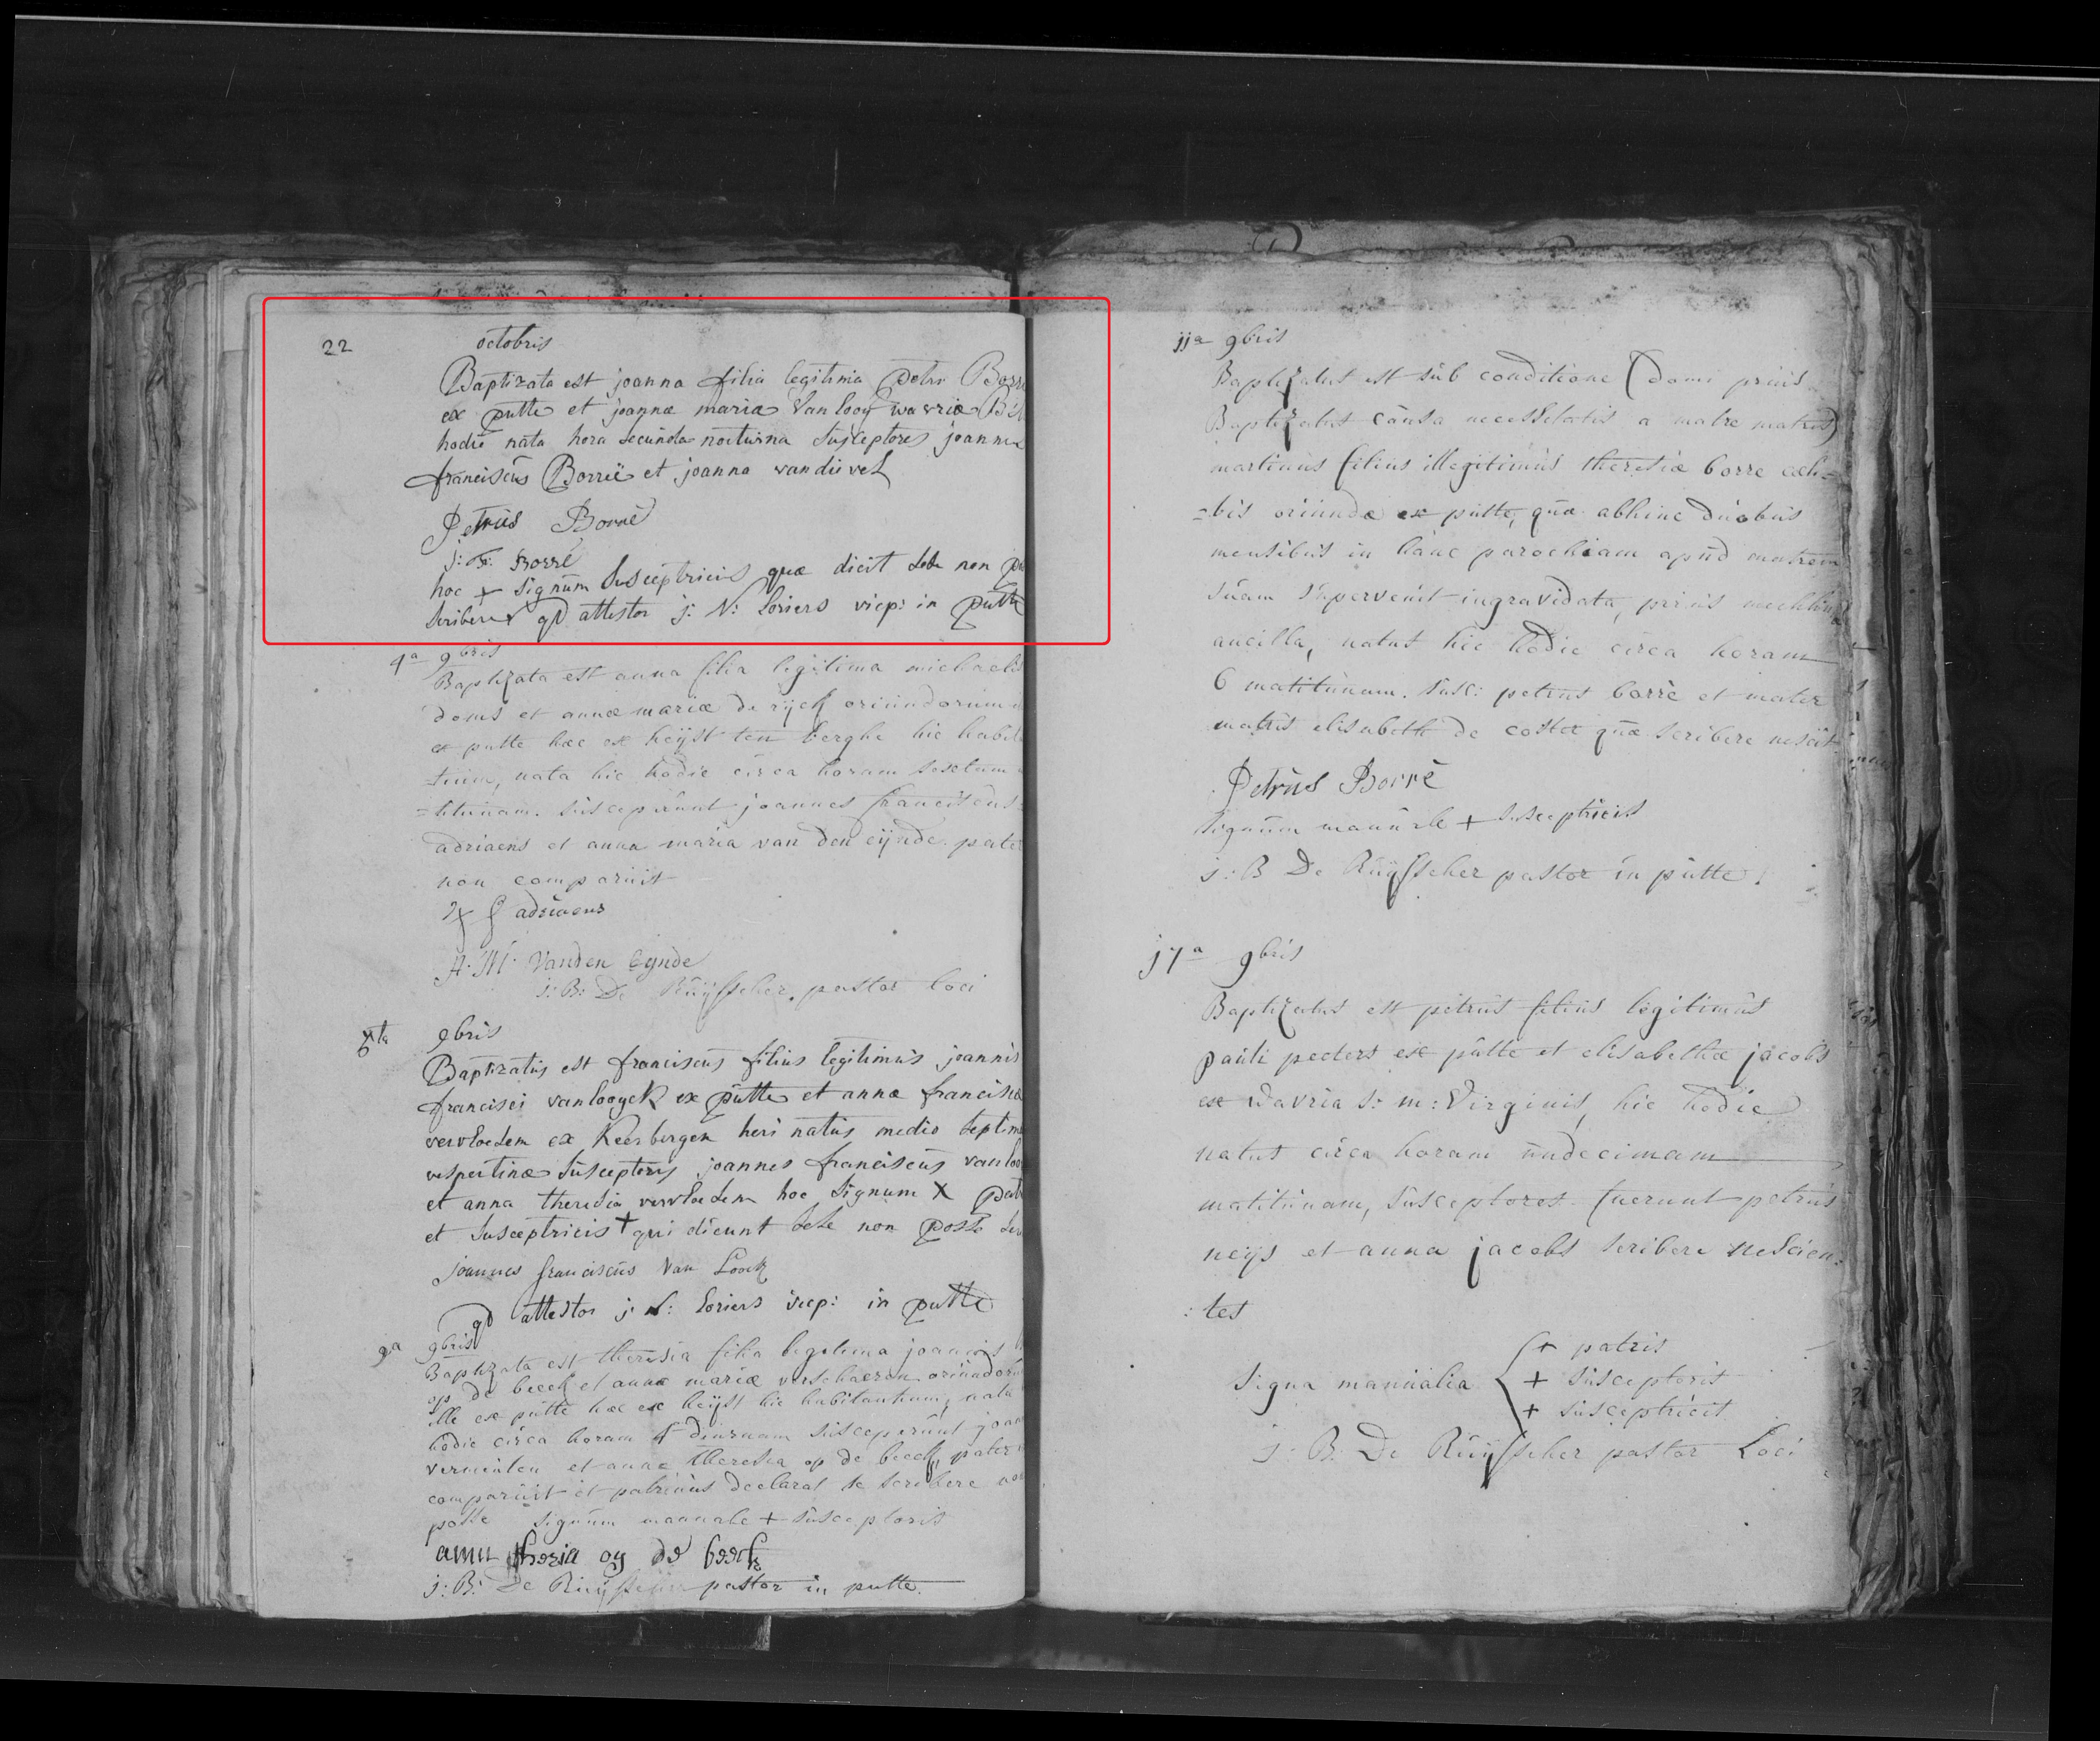 22 octobris
Baptizata est joanna filia legitima petri Borre
ex putte et joannæ mariæ Van looy wavriæ
hodie nata hora secunda nocturna Susceptores joannes
franciscus Borrië et joanna vandievel
Petrus Borré
j: F: Borré
hoc + signum Susceptricis quæ dicit sese non
scribere qd attestor j: N: Loriers vicp: in putte
4a 9bris
Baptizata est anna filia legitima michaelis
doms et annæ mariæ de rijck oriundorum
ex putte hæc ex heijst ten berghe hic habi
-tium, nata hic hodie circa horam sextam
=tutinam. susceperunt joannes franciscus
adriaens et anna maria van den eijnde. pater
non comparuit
J f adriaens
A. M. Vanden Eynde
j: B: De Ruijsscher, pastor loci
9bris
Baptizatus est franciscus filius legitimus joannis
francisci vanlooyck ex putte et annæ franciscæ
vervloesem ex Keerbergen heri natus medio septimæ
vespertinæ Susceptores joannes franciscus van loo
et anna theresia vervloesem hoc signum X patris
et susceptricis + qui dicunt sese non posse
joannes franciscus Van Loock
qd attestor j: N: Loriers vicp: in putte
9a 9bris
Baptizata est theresia filia legitima joannis
op de beeck et annæ mariæ verschaeren oriundorum
ille ex putte hæc ex heijst hic habitantium, nata
hodie circa horam 4 diurnam susceperunt joannes
vermeulen et anna theresia op de beeck, pater
comparuit et patrinus declarat se scribere non
posse signum manuale + susceptoris
anna op de beeck
j: B: De Ruijsscher pastor in putte.
jja 9bris
Baptizatus est sub conditione (domi prius
Baptizatus causa necessitatis a matre matris)
martinus filius illegitimus theresiæ borre cæli=
=bis oriundæ ex putte, quæ abhinc duobus
mensibus in hanc parochiam apud matrem
suam supervenit ingravidata, prius
ancilla, natus hic hodie circa horam
6 matutinam. Susc: petrus borré et mater
matris elisabeth de coster quæ scribere nescit
Petrus Borré
signum manuale + susceptricis
j: B De Ruijsscher pastor in putte.
j7a 9bris
Baptizatus est petrus filius legitimus
pauli peeters ex putte et elisabethæ jacobs
ex wavria S: m: Virginis, hic hodie
natus circa horam undecimam
matutinam, susceptores fuerunt petrus
neijs et anna jacobs scribere nescien:
:tes
+ patris
signa manualia + susceptoris
+ susceptricis
j: B: De Ruijsscher pastor Loci